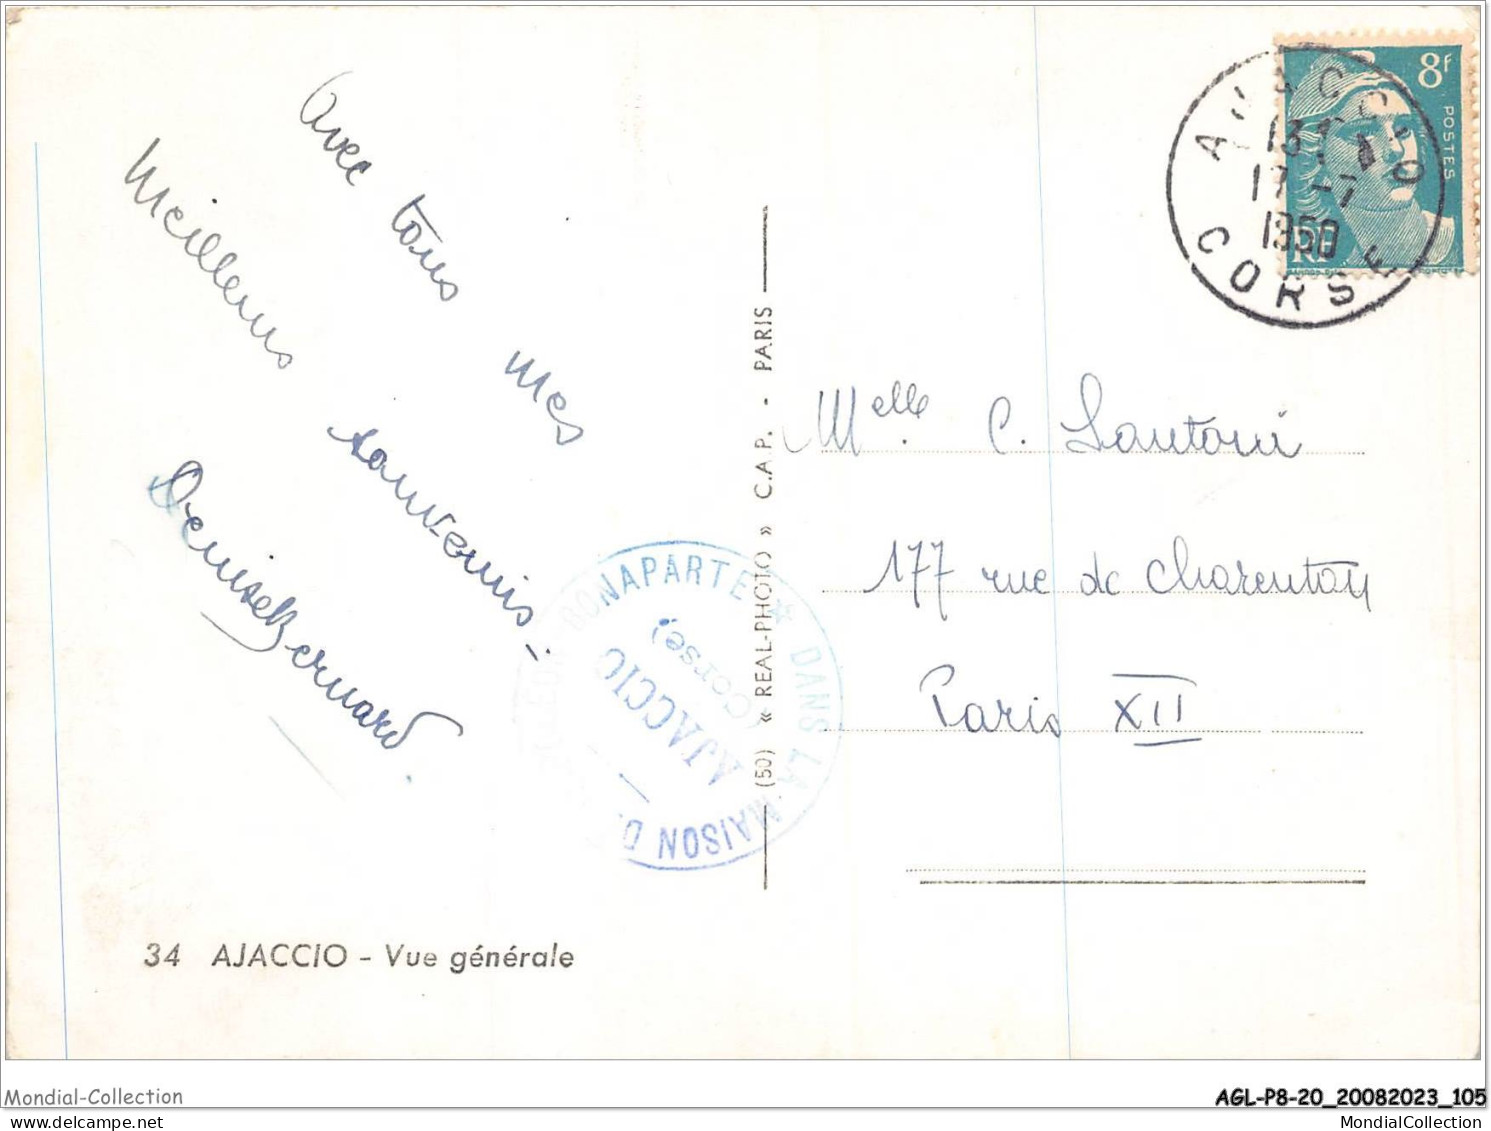 Avec tous mes
Meilleurs souvenirs -
Denise Bernard.
34 AJACCIO - Vue générale
(50) « REAL-PHOTO » C.A.P. - PARIS
BONAPARTE * DANS LA MAISON
AJACCIO
(Corse)
8f
POSTES
RF
AJACCIO
1950
CORSE
Melle. C. Santoni
177 rue de Charenton
Paris XII
Mondial-Collection
AGL-P8-20_20082023_105
MondialCollection